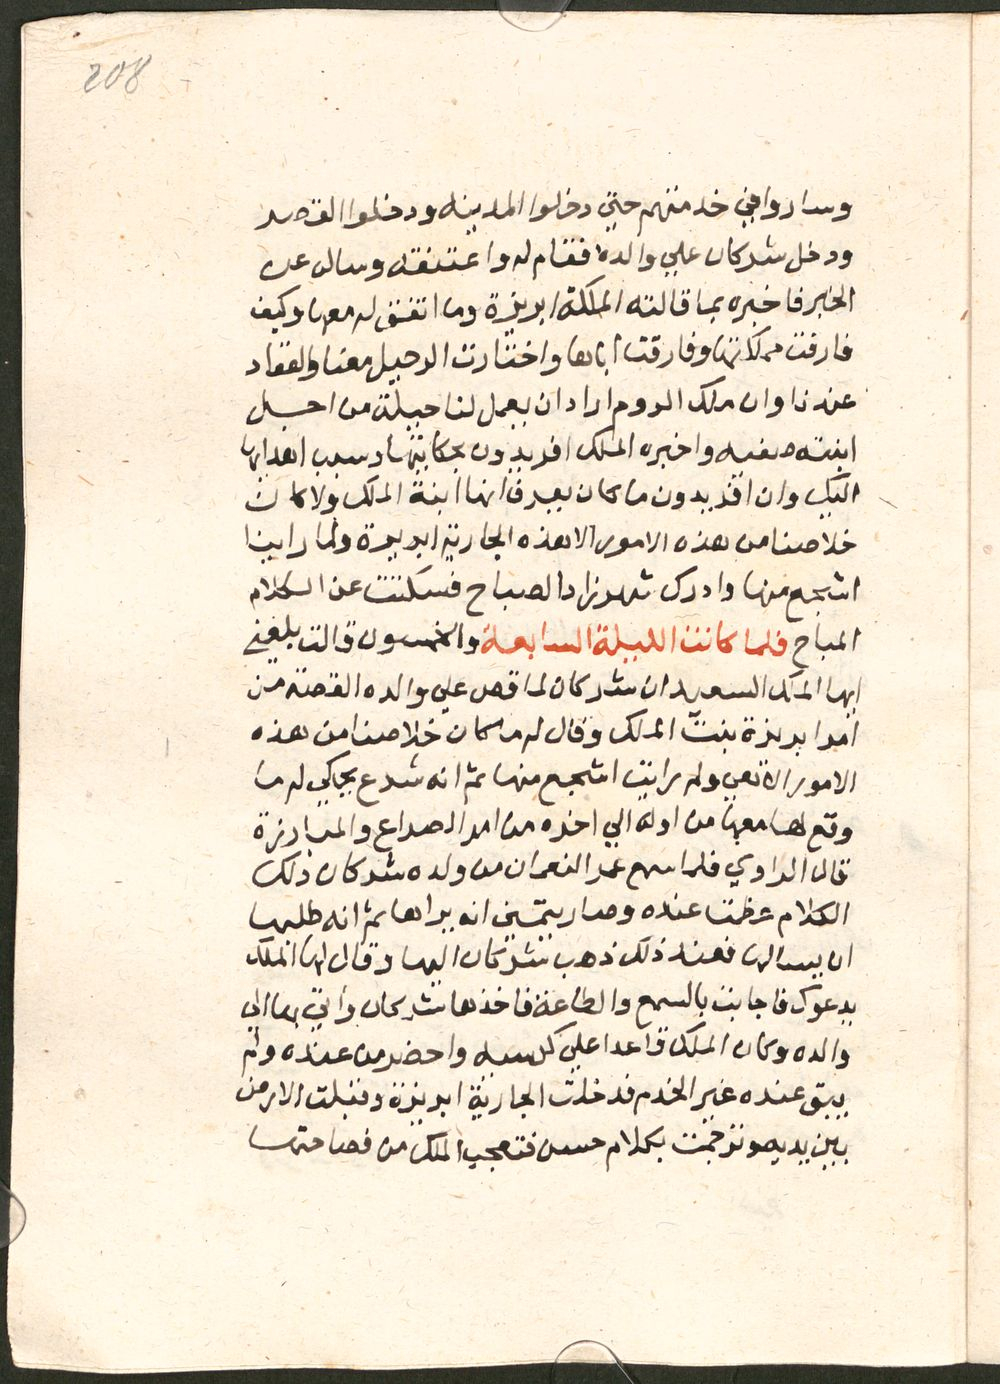 208
وساروا في خدمتهم حتي دخلوا المدينه ودخلوا القصر
ودخل شركان علي والده فقام له واعتنقه وساله عن
الخبر فاخبره بما قالته الملكة ابريزة وما اتفق له معها وكيف
فارقت مملكتها وفارقت اباها واختارت الرحيل معنا والقعاد
عندنا وان ملك الروم اراد ان يعمل لنا حيلة من اجل
ابنته صفيه واخبره الملك افريدون بحكايتها وسبب اهدايها
اليك وان افريدون ما كان يعرف انها ابنة الملك ولا كان
خلاصنا من هذه الامور الا بهذه الجارية ابريزة ولما راينا
اشجع منها وادرك شهرزاد الصباح فسكتت عن الكلام
المباح فلما كانت الليلة السابعة والخمسون قالت بلغني
ايها الملك السعيد ان شركان لما قص علي والده القصة من
امر ابريزة بنت الملك وقال له ما كان خلاصنا من هذه
الامور الا هي ولم رايت اشجع منها ثم انه شرع يحاكي له ما
وقع لها معها من اوله الي اخره من امر الصراع والمبارزة
قال الراوي فلما سمع عمر النعمان من ولده شركان ذلك
الكلام عظمت عنده وصار يتمني انه يراها ثم انه طلبها
ان يسالها فعند ذلك ذهب شركان اليها وقال لها الملك
يدعوك فاجابت بالسمع والطاعة فاخذها شركان واتي بها الي
والده وكان الملك قاعدا علي كرسيه واحضر من عنده ولم
يبق عنده غير الخدم فدخلت الجارية ابريزة وقبلت الارض
بين يديه وترجمت بكلام حسن فتعجب الملك من فصاحتها